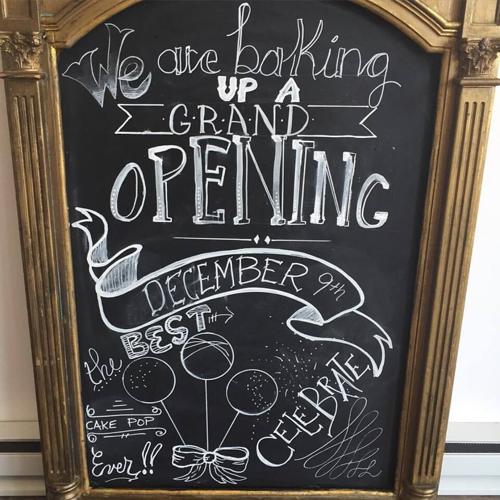 We are baking
UP A
GRAND
OPENING
DECEMBER 9th
the
BEST
CAKE POP
Ever!!
CELEBRATE